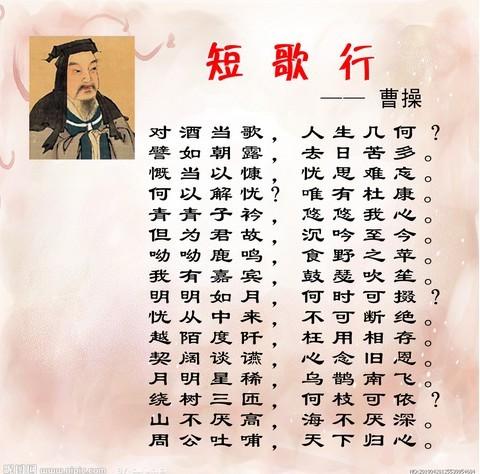 短歌行
—— 曹操
对酒当歌，人生几何？
譬如朝露，去日苦多。
慨当以慷，忧思难忘。
何以解忧？唯有杜康。
青青子衿，悠悠我心。
但为君故，沉吟至今。
呦呦鹿鸣，食野之苹。
我有嘉宾，鼓瑟吹笙。
明明如月，何时可掇？
忧从中来，不可断绝。
越陌度阡，枉用相存。
契阔谈讌，心念旧恩。
月明星稀，乌鹊南飞。
绕树三匝，何枝可依？
山不厌高，海不厌深。
周公吐哺，天下归心。
昵图网 www.nipic.com